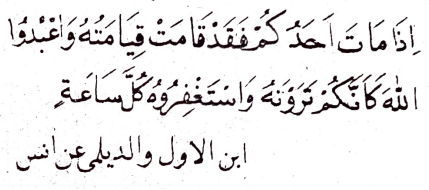 اِذَا مَاتَ اَحَدُكُمْ فَقَدْ قَامَتْ قِيَامَتُهُ وَاعْبُدُوا
اللهَ كَاَنَّكُمْ تَرَوْنَهُ وَاسْتَغْفِرُوهُ كُلَّ سَاعَةٍ
ابن الاول والديلمى عن انس